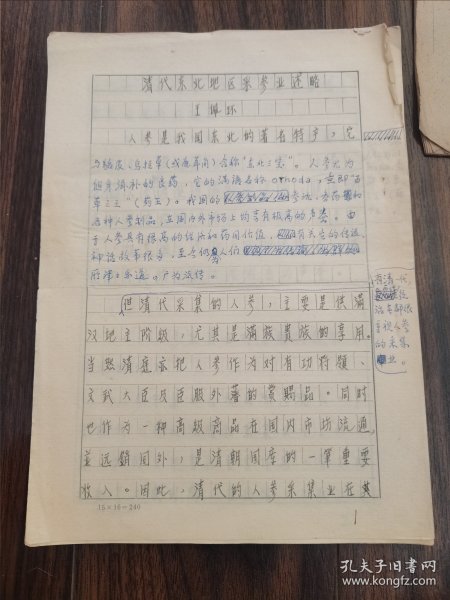 清代东北地区采参业述略
王佩环
人参是我国东北的著名特产，它
与貂皮、乌拉草（或鹿茸角）合称“东北三宝”。人参尤为
健身滋补的良药，它的满语名称orhoda，意即“百
草之王”（药王）。我国的参汤、参药和
各种人参制品，在国内外市场上均享有极高的声誉。由
于人参具有很高的经济和药用价值，有关它的传说、
神话故事很多，至今仍为人们
广为流传。
但清代采集的人参，主要是供满
汉地主阶级，尤其是满族贵族的享用。
当然清庭亦把人参作为对有功将领、
文武大臣及臣服外藩的赏赐品。同时
也作为一种高级商品在国内市场流通，
并远销国外，是清朝国库的一笔重要
收入。因此，清代的人参采集业在其
有清一代
统
治者都很
重视人参
的采集
业。
15×16=240
1
孔夫子旧书网
www.kongfz.com